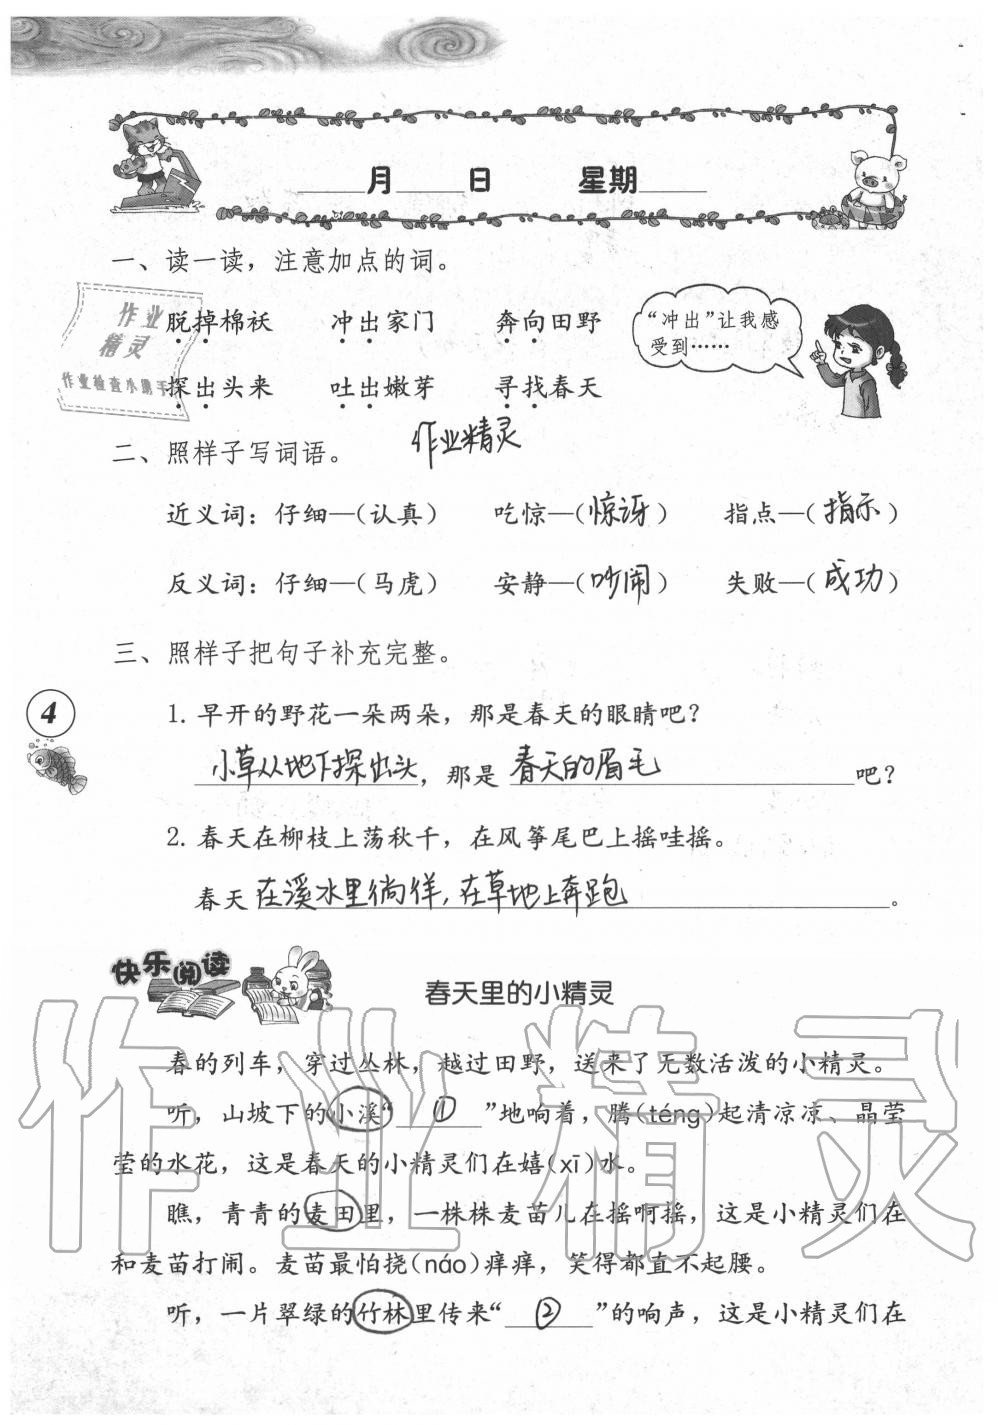 月 日 星期
一、读一读，注意加点的词。
脱掉棉袄 冲出家门 奔向田野
“冲出”让我感
受到……
作业
精灵
作业检查小助手
探出头来 吐出嫩芽 寻找春天
作业精灵
二、照样子写词语。
近义词：仔细—（认真） 吃惊—（惊讶） 指点—（指示）
反义词：仔细—（马虎） 安静—（吵闹） 失败—（成功）
三、照样子把句子补充完整。
4
1. 早开的野花一朵两朵，那是春天的眼睛吧？
小草从地下探出头，那是 春天的眉毛 吧？
2. 春天在柳枝上荡秋千，在风筝尾巴上摇哇摇。
春天在溪水里徜徉，在草地上奔跑。
快乐阅读
春天里的小精灵
春的列车，穿过丛林，越过田野，送来了无数活泼的小精灵。
听，山坡下的小溪“ ① ”地响着，腾(téng)起清凉凉、晶莹
莹的水花，这是春天的小精灵们在嬉(xī)水。
瞧，青青的麦田里，一株株麦苗儿在摇啊摇，这是小精灵们在
和麦苗打闹。麦苗最怕挠(náo)痒痒，笑得都直不起腰。
听，一片翠绿的竹林里传来“ ② ”的响声，这是小精灵们在
作业精灵